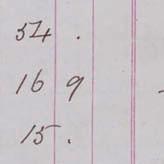 54 .
16 9
15 .